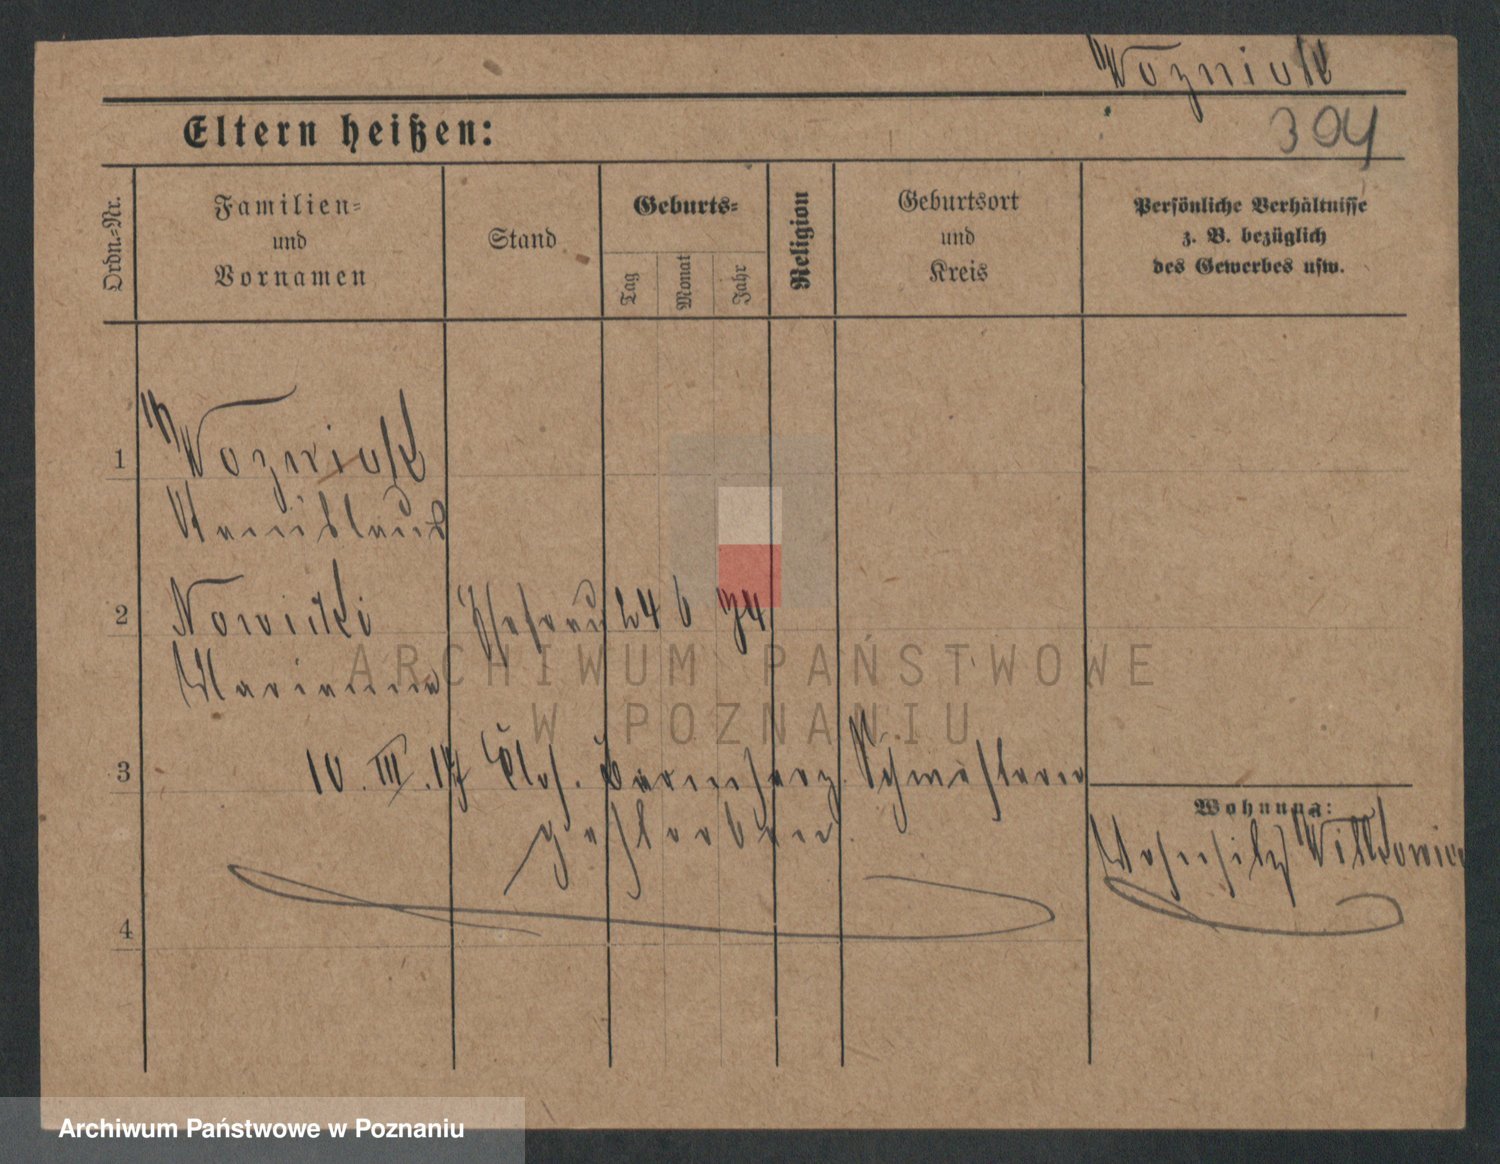 Wozniak
304
Eltern heißen:
Ordn.-Nr.
Familien-
und
Vornamen
Stand
Geburts-
Tag
Monat
Jahr
Religion
Geburtsort
und
Kreis
Persönliche Verhältnisse
z. B. bezüglich
des Gewerbes usw.
1
Wozniak
Stanislaus
2
Nowicki
24 6 74
Marianna
3
10. III. 17
Wohnung:
4
ARCHIWUM PAŃSTWOWE
W POZNANIU
Archiwum Państwowe w Poznaniu